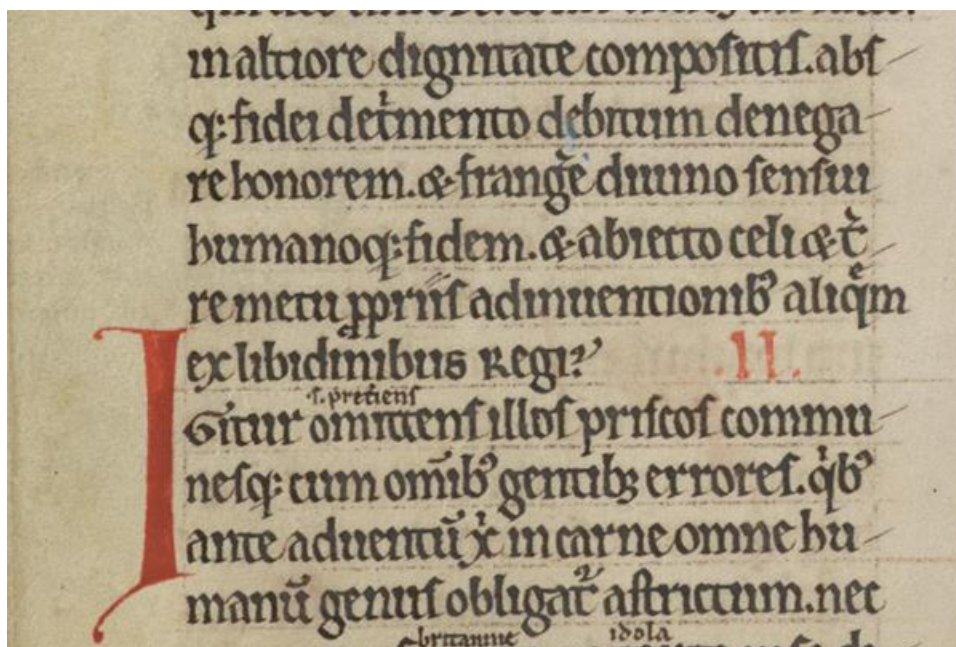 in altiore dignitate compositis. abs
q: fidei det'mento debitum denega
re honorem. & frang'e diuino sensui
humanoq: fidem. & abiecto celi & t'
re metu ppriis adinuentionib' aliqͥm
ex libidinibus Regi?
.II.
s. pretiens
IGitur omittens illos priscos commu
nesq: cum omīb' gentibꝫ errores. qͥb'
ante aduentū xͥ in carne omne hu
manū genus obligat᷑ astrictum. nec
britannie idola